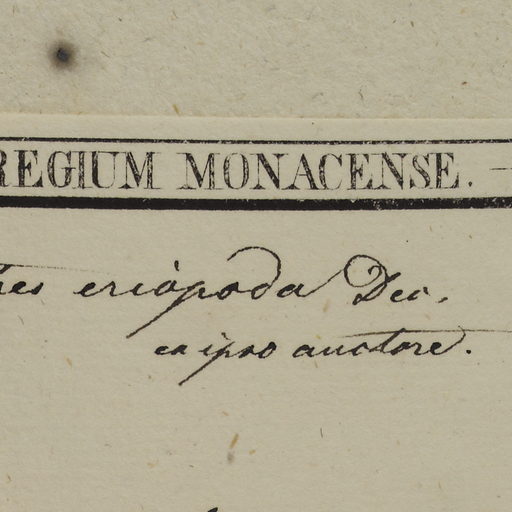 REGIUM MONACENSE.
eriopoda Dec.
ex ipso auctore.